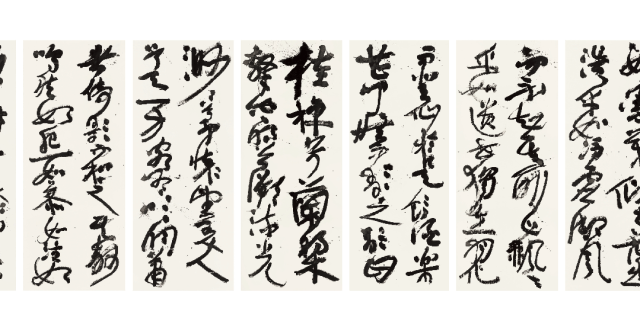 浩浩乎如馮虛御風
而不知其所止飄
乎如遺世獨立羽化
而登仙於是飲酒樂
甚扣舷而歌之歌曰
桂棹兮蘭槳
擊空明兮溯流光
渺渺兮予懷望美人
兮天一方客有吹洞簫
者倚歌而和之其聲
嗚嗚然如怨如慕如泣如